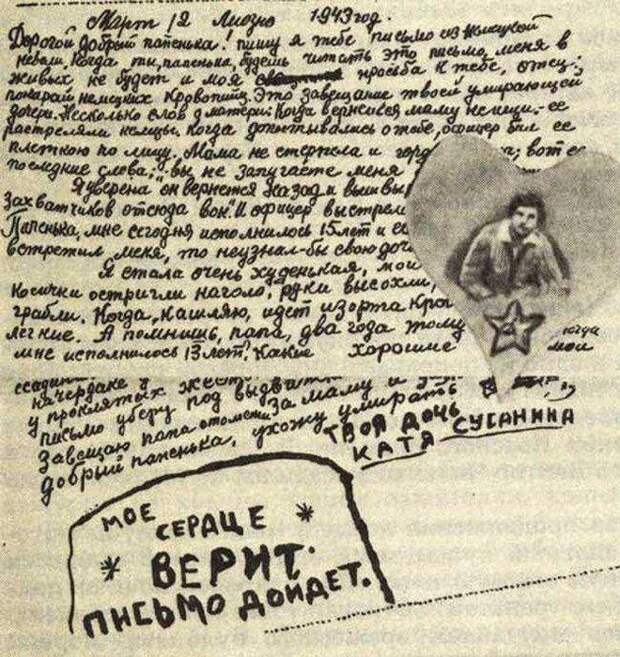 Март, 12 Лиозно 1943 год.
Дорогой добрый папенька! пишу я тебе письмо из немецкой
неволи. Когда ты, папенька, будешь читать это письмо, меня в
живых не будет и моя просьба к тебе, отец:
покарай немецких кровопийц. Это завещание твоей умирающей
дочери. Несколько слов о матери. Когда вернешься маму не ищи-ее
растреляли немцы. Когда допытывались о тебе, офицер бил ее
плеткою по лицу. Мама не стерпела и гордо вот ее
последние слова; "вы не запугаете меня
Я уверена он вернется назад и вышвы
захватчиков отсюда вон." И офицер выстрел
Папенька, мне сегодня исполнилось 15 лет и ес
встретил меня, то неузнал-бы свою доч
Я стала очень худенькая, мои
косички остригли наголо, руки высохли,
грабли. Когда, кашляю, идет изорта кров
легкие. А помнишь, папа, два года тому когда
мне исполнилось 13 лет? Какие хорошие мои
ссадин
на чердаке у
у проклятых жест
письмо уберу под
Завещаю папа отомсти за маму и
добрый папенька, ухожу умирать
ТВОЯ ДОЧЬ
КАТЯ СУСАНИНА
МОЕ
СЕРДЦЕ
ВЕРИТ.
ПИСЬМО ДОЙДЕТ.